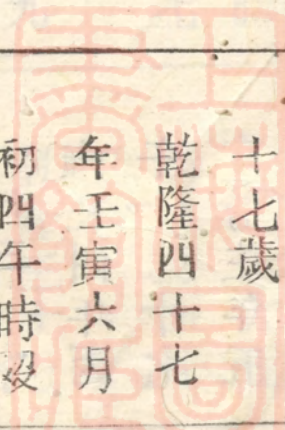 十七歲
乾隆四十七
年壬寅六月
初四午時歿